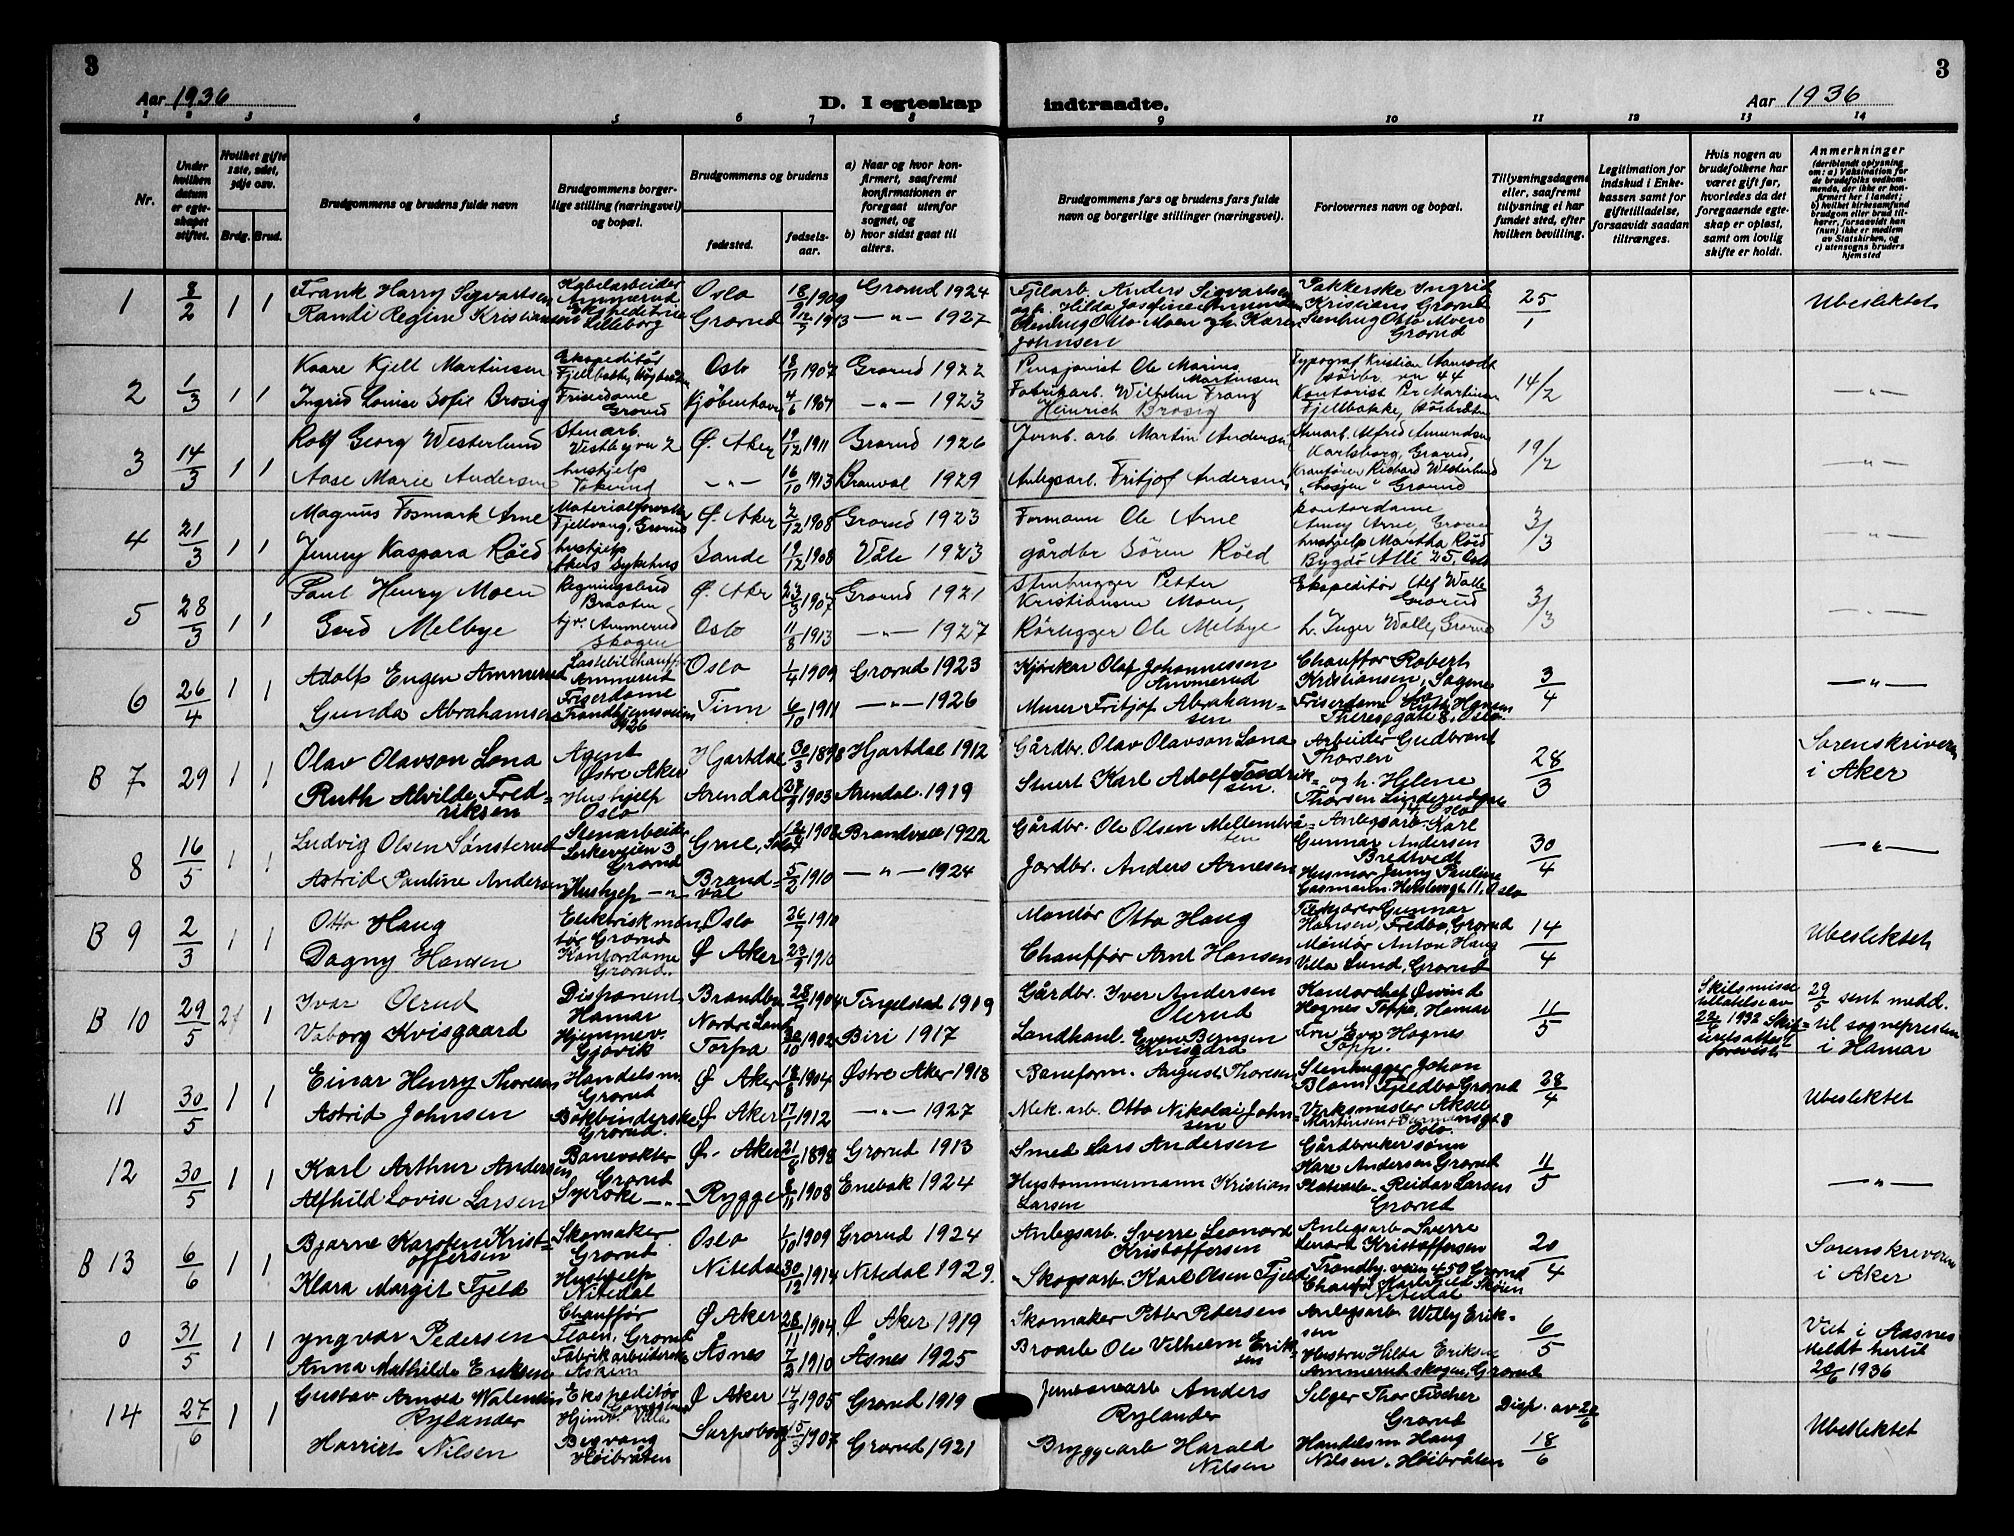 3
3
Aar 1936
D. I egteskap
indtraadte.
Aar 1936
1 2 3 4 5 6 7 8 9 10 11 12 13 14
Nr.
Under hvilken datum er egteskapet stiftet.
Hvilket gifte 1ste, 2det, 3dje osv.
Brdg. Brud.
Brudgommens og brudens fulde navn
Brudgommens borgerlige stilling (næringsvei) og bopæl.
Brudgommens og brudens
fødested.
fødselsaar.
a) Naar og hvor konfirmert, saafremt konfirmationen er foregaat utenfor sognet, og
b) hvor sidst gaat til alters.
Brudgommens fars og brudens fars fulde navn og borgerlige stillinger (næringsvei).
Forlovernes navn og bopæl.
Tillysningsdagene eller, saafremt tillysning ei har fundet sted, efter hvilken bevilling.
Legitimation for indskud i Enkekassen samt for giftetilladelse, forsaavidt saadan tiltrænges.
Hvis nogen av brudefolkene har været gift før, hvorledes da det foregaaende egteskap er opløst, samt om lovlig skifte er holdt.
Anmerkninger
(deriblandt oplysning om: a) Vaksination for de brudefolks vedkommende, der ikke er konfirmert her i landet; b) hvilket kirkesamfund brudgom eller brud tilhører, forsaavidt han (hun) ikke er medlem av Statskirken, og c) utensogns bruders hjemsted
1 8/2 1 1 Frank Harry Sigvartsen Kabelarbeider Ammerud Oslo 18/9 1909 Grorud 1924 Fjelarb. Anders Sigvartsen Pakkerske Ingrid Kristians Grorud 25/1 Ubeslektet
Randi Regine Kristiansen Ekspeditrise Lilleborg Grorud 1913 — " — 1927 Stenhug Otto Moen Karen Johnsen Stenhug Otto Moen Grorud
2 1/3 1 1 Kaare Kjell Martinsen Ekspeditør Fjellbakke, Høybråten Oslo 18/11 1907 Grorud 1922 Pensjonist Ole Marius Martinsen Typograf Kristian Aamodt 14/2 — " —
Ingrid Louise Sofie Brosig Friserdame Grorud Kjøbenhavn 4/6 1907 — " — 1923 Fabrikarb. Wilhelm Franz Heinrich Brosig Kontorist Per Martinsen Fjellbakke, Høibråten
3 14/3 1 1 Rolf Georg Westerlund Stenarb. Vestbyvn 2 Ø. Aker 19/12 1911 Grorud 1926 Jernb. arb. Martin Andersen Stenarb. Alfred Amundsen Karlsborg, Grorud, 19/2 — " —
Aase Marie Andersen hushjelp Tokerud — " — 16/10 1913 Branval 1929 Anlegsarb. Fritjof Andersen Kranfører Rickard Westerlund Grorud
4 21/3 1 1 Magnus Fosmark Arne Materialforvalter Fjellvang, Grorud Ø. Aker 2/12 1908 Grorud 1923 Formann Ole Arne kontordame Anny Arne, Grorud 3/3 — " —
Jenny Kaspara Röed hushjelp Akers Sykehus Sande 19/12 1908 Våle 1923 gårdbr Sören Röed hushjelp Martha Röed Bygdö Allé 25, Oslo
5 28/3 1 1 Paul Henry Moen Regningsbud Braaten Ø. Aker 23/3 1907 Grorud 1921 Stenhugger Petter Kristiansen Moen, Ekspeditör Alf Walle Grorud 3/3 — " —
Gerd Melbye hjv. Ammerud Skogen Oslo 11/8 1913 — " — 1927 Rørlegger Ole Melbye h. Inger Walle, Grorud
6 26/4 1 1 Adolf Eugen Ammerud Lastebilchauffør Ammerud Oslo 1/4 1909 Grorud 1923 Kjørekar Olaf Johannessen Ammerud Chauffør Robert Kristiansen, Sogne 3/4 — " —
Gunda Abrahamsen Friserdame Trondhjemsveien 436 Tinn 6/10 1911 — " — 1926 Murer Fritjof Abrahamsen Friserdame Ruth Hansen Theresegate 8, Oslo
B 7 29 1 1 Olav Olavson Lona Agent Østre Aker Hjartdal 30/3 1898 Hjartdal 1912 Gårdbr. Olav Olavson Lona Arbeider Gudbrand Thorsen 28/3 Sorenskriveren i Aker
Ruth Alvilde Fredriksen Hushjelp Oslo Arendal 1903 Arendal 1919 Stuert Karl Adolf Fredriksen og h. Helene Thorsen Oslo
8 16/5 1 1 Ludvig Olsen Sønsterud Stenarbeider Lerkeveien 3 Grorud Grue, Solør 1902 Brandval 1922 Gårdbr. Ole Olsen Mellembråten Anlegsarb. Karl Gunnar Andersen Bredtvedt 30/4 — " —
Astrid Pauline Andersen Hushjelp — " — Brandval 5/2 1910 — " — 1924 Jordbr. Anders Arnesen Husmor Jenny Pauline 11, Oslo
B 9 2/3 1 1 Otto Haug Elektrisk montør Grorud Oslo 1910 Montör Otto Haug Gunnar Hansen, Fredbo, Grorud 14/4 Ubeslektet
Dagny Hansen Kontordame Grorud Ø Aker 23/9 1910 Chauffør Arnt Hansen Montør Anton Haug Villa Lund, Grorud
B 10 29/5 2 1 Ivar Olerud Disponent Hamar Brandbu 1904 Tingelstad 1919 Gårdbr. Iver Andersen Olerud Kontorchef Øivind Hognes Toppe, Hamar 11/5 Skilsmisse tillatelse av 22/4 1932 Skifteretsattest forevist 29/5 sent medd. til sognepresten i Hamar
Vaborg Kvisgaard Hjemmev. Gjøvik Nordre Land Torpa 30/10 1902 Biri 1917 Landhand. Even Kvisgård Fru Eva Hognes Topp.
11 30/5 1 1 Einar Henry Thoresen Handelsm. Grorud Ø Aker 18/8 1904 Østre Aker 1918 Baneform. August Thoresen Stenhugger Johan Blom, Fjeldbo Grorud 28/4 Ubeslektet
Astrid Johnsen Bokbinderske Grorud Ø Aker 1912 — " — 1927 Mek. arb. Otto Nikolai Johnsen Verksmester Aksel Martinsen, Oslo.
12 30/5 1 1 Karl Arthur Andersen Banevokter Grorud Ø. Aker 21/8 1898 Grorud 1913 Smed Lars Andersen Gårdbruker sønn Kåre Andersen Grorud 11/5 — " —
Alfhild Lovise Larsen Syerske — " — Rygge 8/11 1908 Enebak 1924 Hustømmermann Kristian Larsen Platearb. Reidar Larsen Grorud
B 13 6/6 1 1 Bjarne Karsten Kristoffersen Skomaker Grorud Oslo 1/10 1909 Grorud 1924 Anlegsarb. Sverre Leonard Kristoffersen Anlegsarb Sverre Lenard Kristoffersen Trondhj. veien 450 Grorud 20/4 Sorenskriveren i Aker
Klara Margit Fjeld Hushjelp Nitedal Nitedal 30/12 1914 Nitedal 1929. Skogsarb. Karl Olsen Fjeld Chauffør Karl Fjeld Skøien Nitedal
0 31/5 1 1 Yngvar Pedersen Chauffør Floen, Grorud Ø Aker 28/11 1904 Ø Aker 1919 Skomaker Petter Petersen Anlegsarb Willy Eriksen 6/5 Viet i Aasnes Meldt hertil 20/6 1936
Anna Mathilde Eriksen Fabrikarbeiderske Åsnes 7/2 1910 Åsnes 1925 Broarb Ole Vilhelm Eriksen Hustru Hilda Eriksen Ammerudskogen, Grorud
14 27/6 1 1 Gustav Arnold Walentin Rylander Ekspeditør Ø Aker 14/9 1905 Grorud 1919 Jernbanearb Anders Rylander Selger Thor Fischer Grorud Disp. av 20/6 Ubeslektet
Harriet Nilsen Hjmv. Villa Bergvang Høibråten Sarpsborg 15/3 1907 Grorud 1921 Bryggearb Harald Nilsen Handelsm Haug Nilsen. Høibråten 18/6